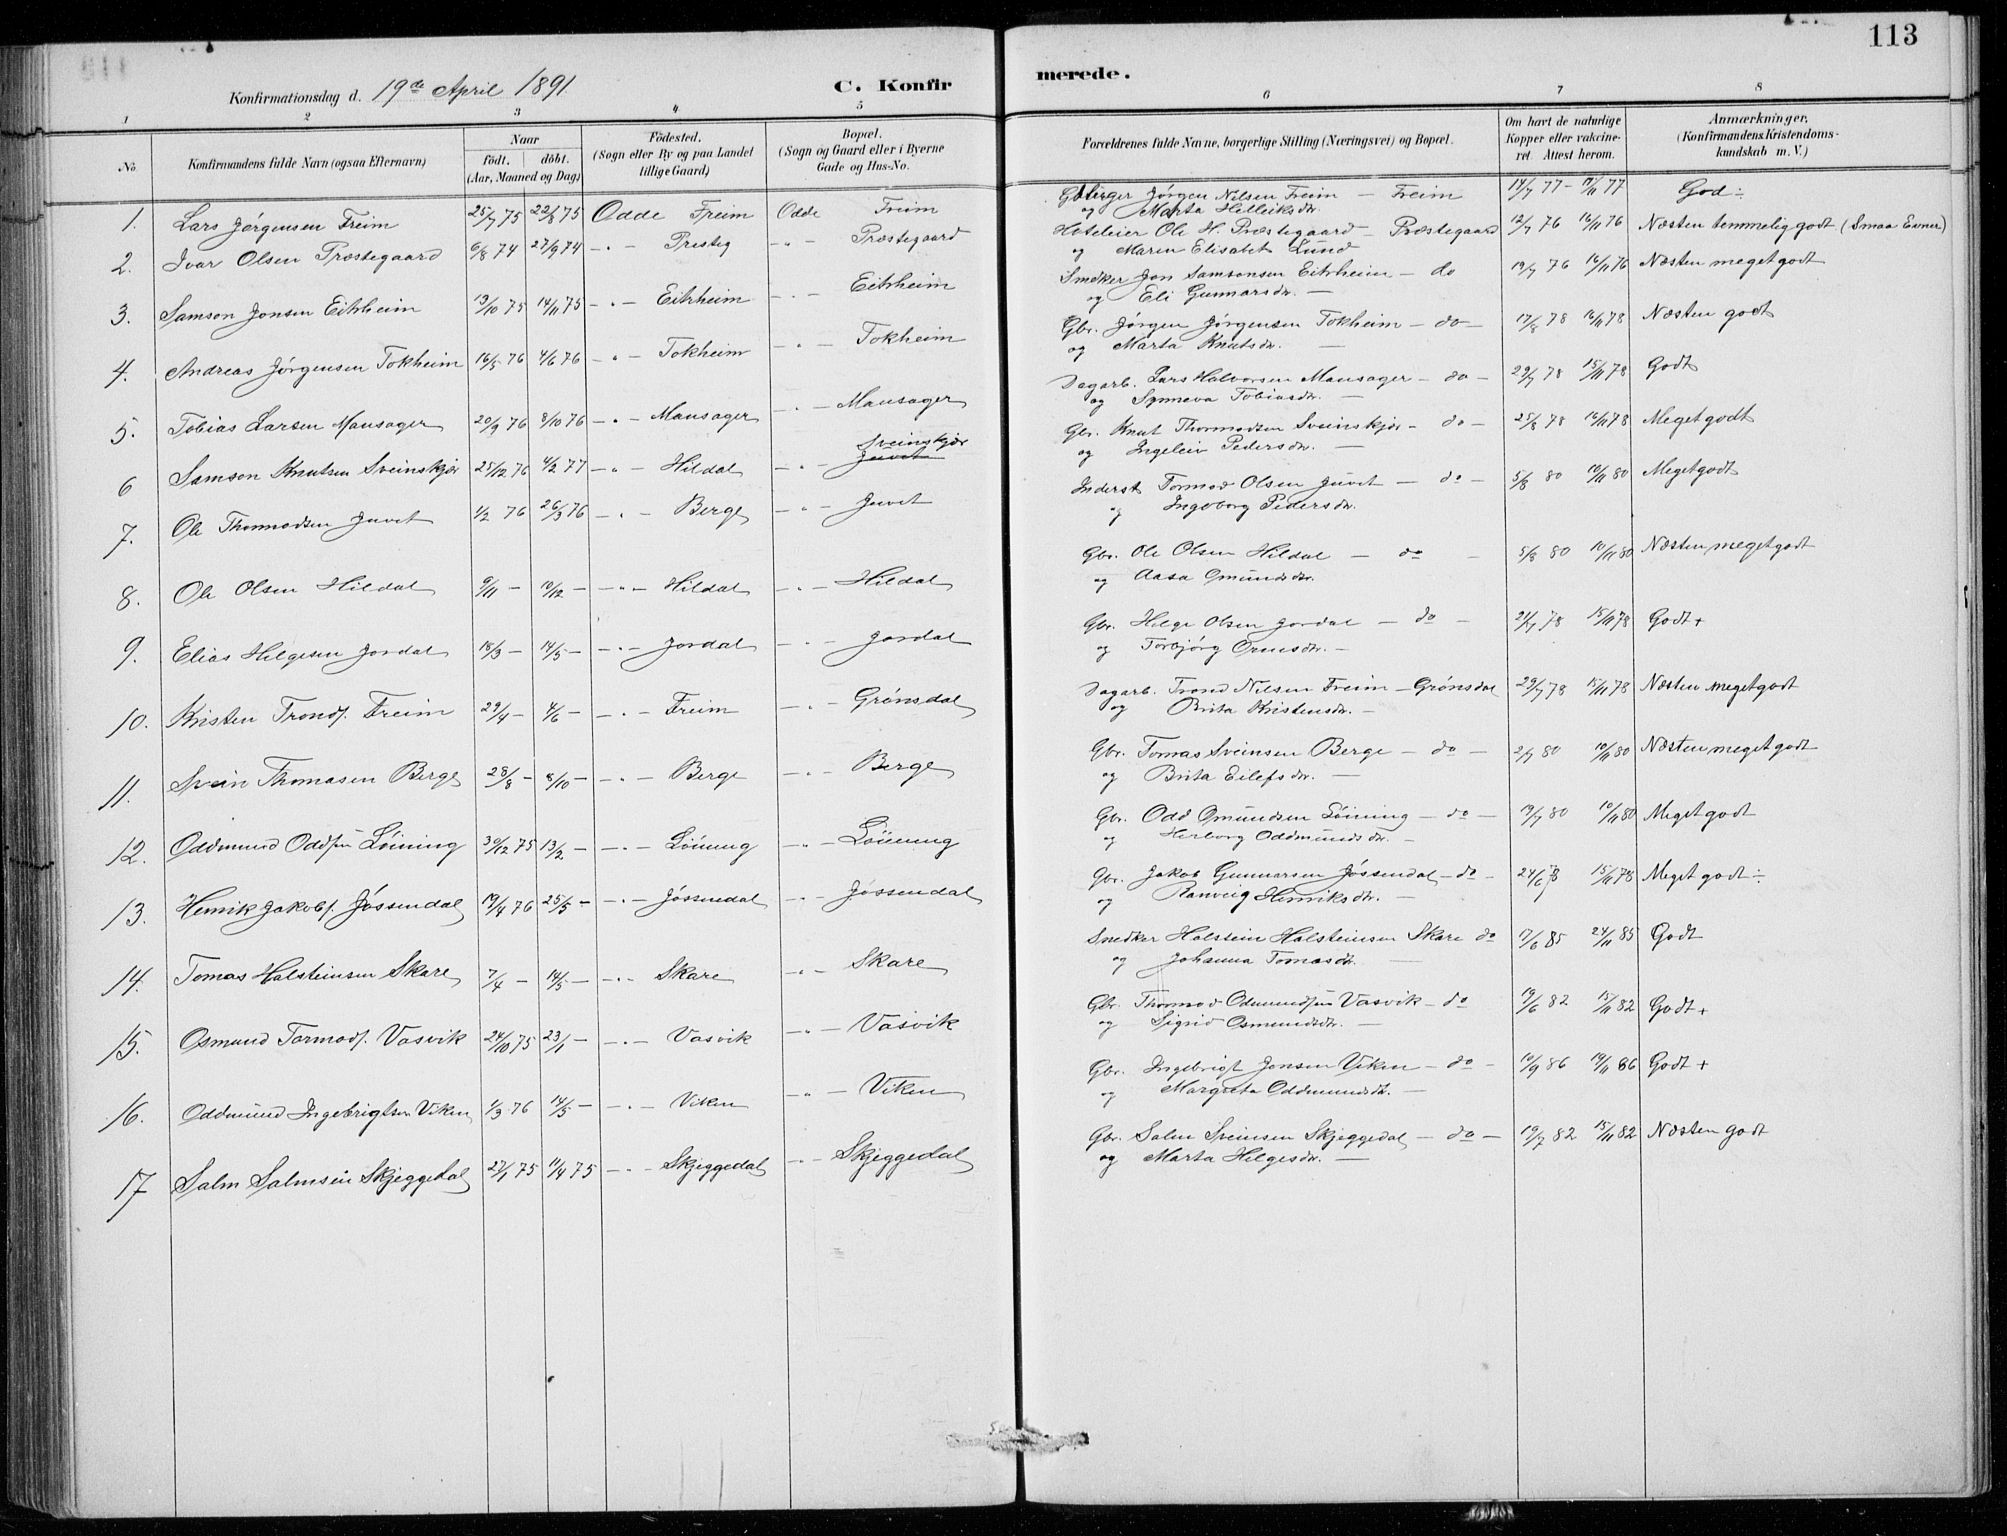 113
Konfirmationsdag d. 19de April 1891
C. Konfir
merede.
1 2 3 4 5 6 7 8
No. Konfirmandens fulde Navn (ogsaa Efternavn)
Naar
født. døbt.
(Aar, Maaned og Dag)
Fødested.
(Sogn eller By og paa Landet
tillige Gaard)
Bopæl.
(Sogn og Gaard eller i Byerne
Gade og Hus-No.
Forældrenes fulde Navne, borgerlige Stilling (Næringsvei) og Bopæl.
Om havt de naturlige
Kopper eller vakcine-
ret. Attest herom.
Anmærkninger,
(Konfirmandens Kristendoms-
kundskab m. V.)
1. Lars Jørgensen Freim 25/7 75 22/8 75 Odde Freim Odde Freim Jørgen Nilsen Freim — Freim 14/7 77 - 17/11 77 God ÷
og Marta Helleiksdr.
2. Ivar Olsen Præstegaard 6/8 74 27/9 74 -"- Presteg -"- Præstegaard Hoteleier Ole H. Præstegaard — Præstegaard 12/7 76 16/11 76 Næsten temmelig godt (Smaa Evner)
og Maren Elisabet Lund
3. Samson Jonsen Eitrheim 13/10 75 14/11 75 -"- Eitrheim -"- Eitrheim Snedker Jon Samsonsen Eitrheim — do 19/7 76 16/11 76 Næsten meget godt
og Eli Gunnarsdr. —
4. Andreas Jørgensen Tokheim 16/5 76 4/6 76 -"- Tokheim -"- Tokheim Gbr. Jørgen Jørgensen Tokheim — do — 17/8 78 16/11 78 Næsten godt
og Marta Knutsdr. —
5. Tobias Larsen Mansager 20/9 76 8/10 76 -"- Mansager -"- Mansager Dagarb. Lars Halvorsen Mansager — do — 29/7 78 15/11 78 Godt
og Synneva Tobiasdr. —
6 Samson Knutsen Sveinskjør 25/12 76 4/2 77 -"- Hildal -"- Sveinskjør Juvet Gbr. Knut Thormodsen Sveinskjør — do — 25/8 78 16/11 78 Meget godt
og Ingeleiv Pedersdr. —
7. Ole Thormodsen Juvet 1/2 76 26/3 76 -"- Berge -"- Juvet Inderst Tormod Olsen Juvet — do — 5/8 80 10/11 80 Meget godt
og Ingeborg Pedersdr.
8. Ole Olsen Hildal 9/11 - 10/12 - -"- Hildal -"- Hildal Gbr. Ole Olsen Hildal — do — 5/8 80 10/11 80 Næsten meget godt
og Aasa Omundsdr.
9. Elias Helgesen Jordal 18/3 - 14/5 - -"- Jordal -"- Jordal Gbr. Helge Olsen Jordal — do — 21/7 78 15/11 78 Godt +
og Torbjørg Ormsdr. —
10. Kristen Tronds. Freim 29/4 - 4/6 - -"- Freim -"- Grønsdal Dagarb. Trond Nilsen Freim — Grønsdal 29/7 78 15/11 78 Næsten meget godt
og Brita Kristensdr. —
11. Svein Thomasen Berge 28/8 - 8/10 - -"- Berge -"- Berge Gbr. Tomas Sveinsen Berge — do — 2/7 80 10/11 80 Næsten meget godt
og Brita Eilefsdr. —
12. Oddmund Oddsen Løining 30/12 75 13/2 - -"- Løining -"- Løining Gbr. Odd Omundsen Løining — do — 19/7 80 10/11 80 Meget godt
og Herborg Oddmundsdr. —
13. Henrik Jakobs. Jøssendal 19/4 76 25/5 - -"- Jøssendal -"- Jøssendal Gbr. Jakob Gunnarsen Jøssendal — do — 24/6 78 15/11 78 Meget godt ÷
og Ranveig Henriksdr. —
14. Tomas Halsteinsen Skare 7/4 - 14/5 - -"- Skare -"- Skare Snedker Halstein Halsteinsen Skare do 17/6 85 24/11 85 Godt
og Johanna Tomasdr. —
15. Osmund Tormods. Vasvik 24/10 75 23/1 - -"- Vasvik -"- Vasvik Gbr. Thormod Odmundsen Vasvik — do 19/6 82 15/11 82 Godt +
og Sigrid Osmundsdr. —
16. Oddmund Ingebrigtsen Viken 1/3 76 14/5 - -"- Viken -"- Viken Gbr. Ingebrigt Jonsen Viken — do — 10/9 86 19/11 86 Godt +
og Margreta Oddmundsdr. —
17 Salm Salmsen Skjeggedal 27/1 75 11/4 75 -"- Skjeggedal -"- Skjeggedal Gbr. Salm Sveinsen Skjeggedal — do — 19/7 82 15/11 82 Næsten godt
og Marta Helgesdr. —